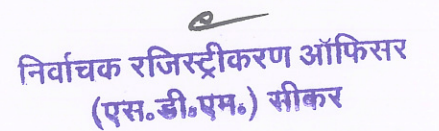 निर्वाचक रजिस्ट्रीकरण ऑफिसर
(एस.डी.एम.) सीकर